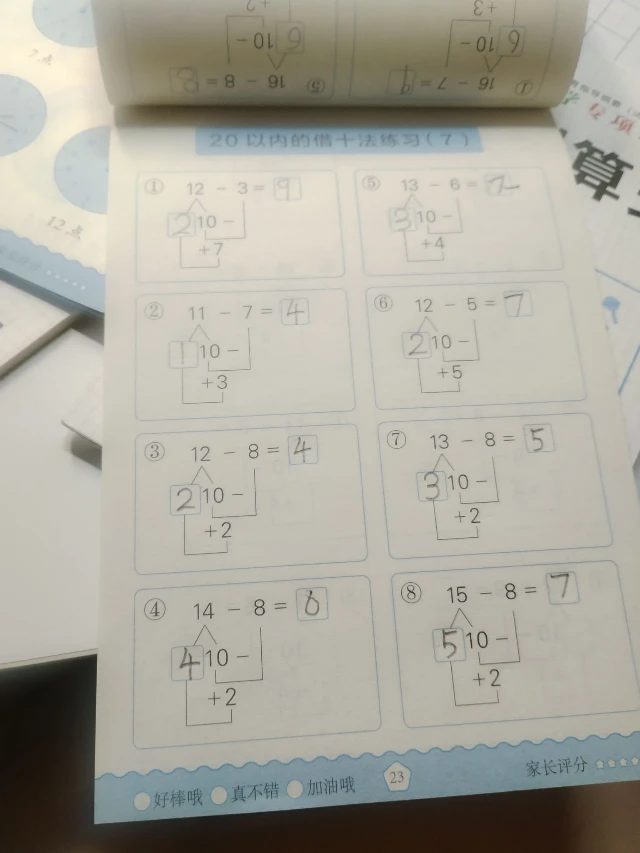 7点
12点
+2
+3
6 10 -
6 10 -
⑤ 16 - 8 = 8
① 16 - 7 = 9
专项
算
20以内的借十法练习(7)
① 12 - 3 = 9
2 10 -
+7
② 11 - 7 = 4
1 10 -
+3
③ 12 - 8 = 4
2 10 -
+2
④ 14 - 8 = 6
4 10 -
+2
⑤ 13 - 6 = 7
3 10 -
+4
⑥ 12 - 5 = 7
2 10 -
+5
⑦ 13 - 8 = 5
3 10 -
+2
⑧ 15 - 8 = 7
5 10 -
+2
好棒哦 真不错 加油哦
23
家长评分